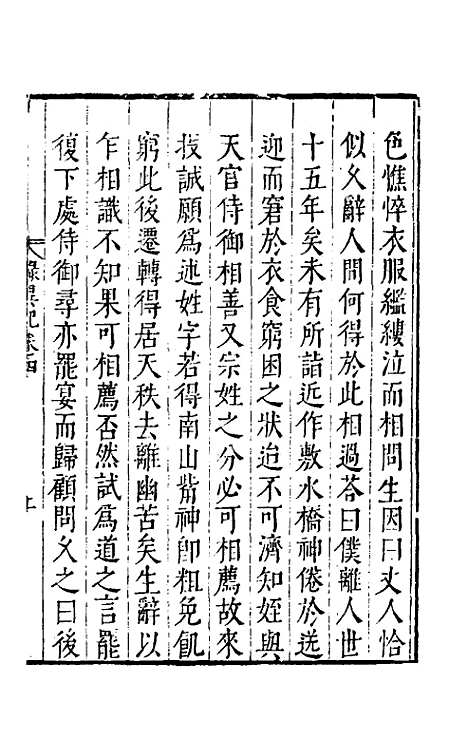 色憔悴衣服繿縷泣而相問生因曰丈人恰
似久辭人間何得於此相過荅曰僕離人世
十五年矣未有所詣近作敷水橋神倦於送
迎而窘於衣食窮困之狀迨不可濟知姪與
天官侍御相善又宗姓之分必可相薦故來
投誠願爲述姓字若得南山觜神卽粗免飢
窮此後遷轉得居天秩去離幽苦矣生辭以
乍相識不知果可相薦否然試爲道之言罷
復下處侍御尋亦罷宴而歸顧問久之曰後
錄異記卷四